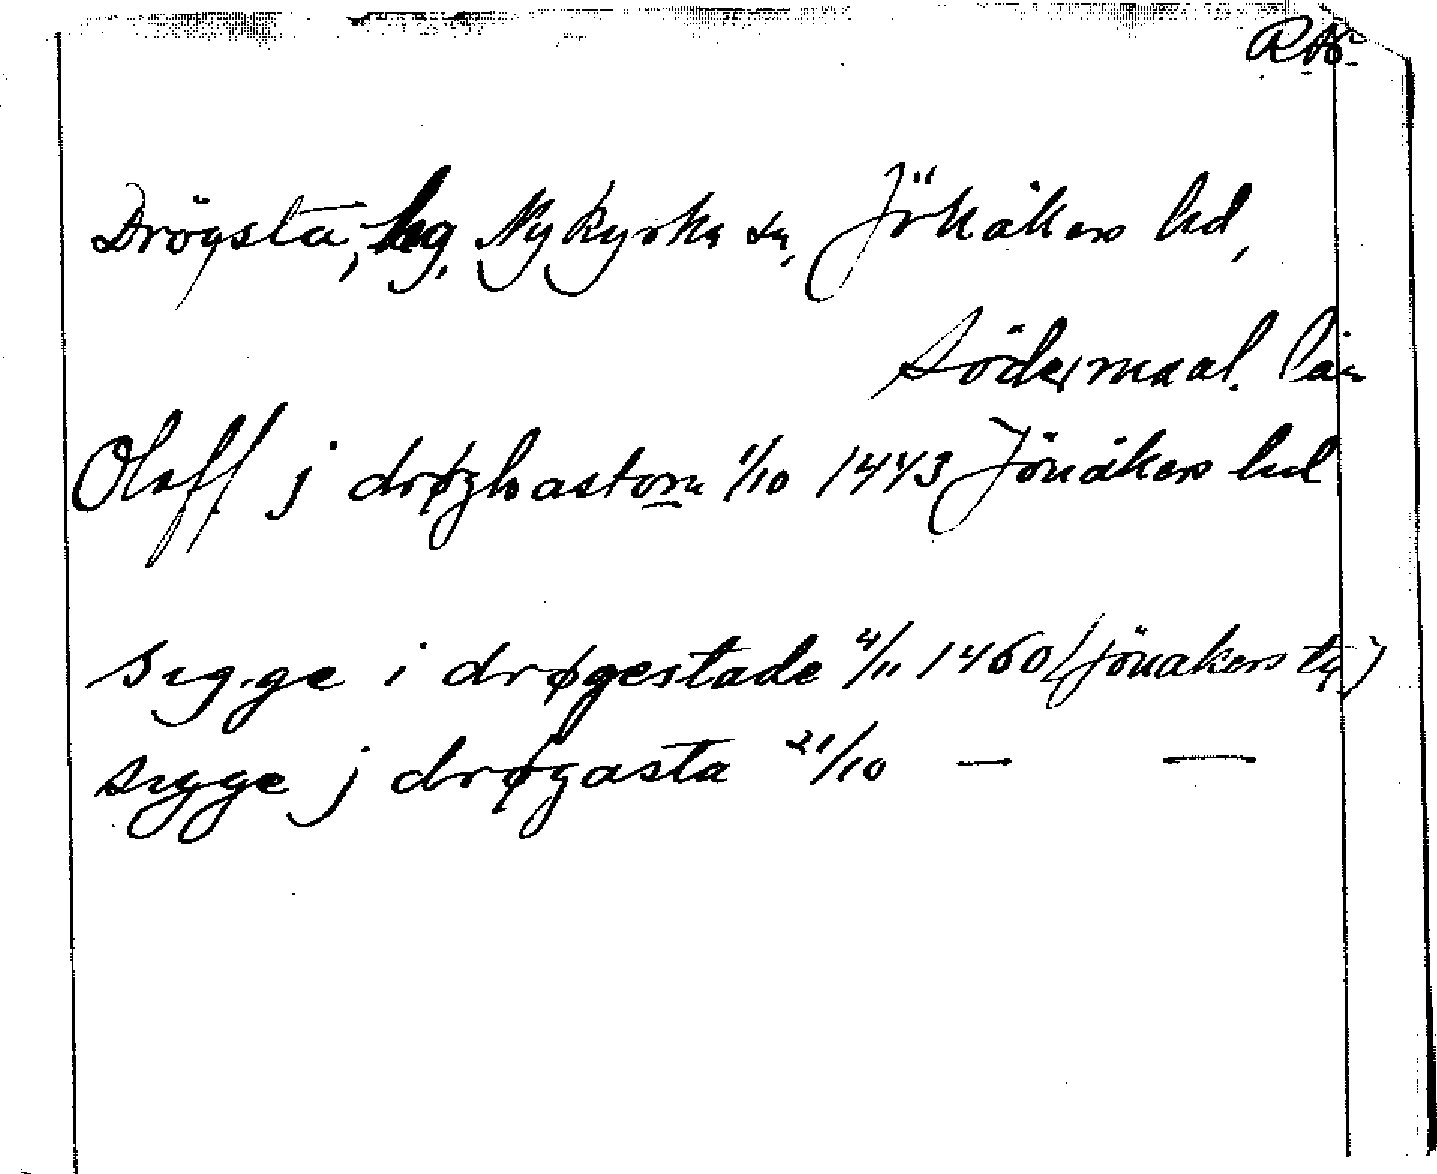 RA
Drögsta, hg. Nykyrka sn, Jönåkers hd,
Södermanl. län
Olaff j drøghastom 1/10 1443 Jönåkers hd
Sigge i drøgestade 4/11 1460 (jönakers )
sigge j drøgasta 21/10 — —